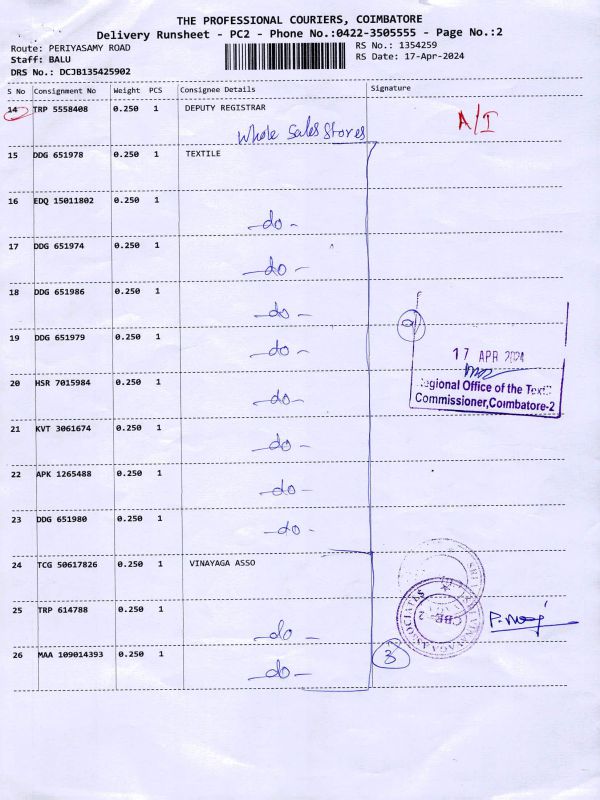 THE PROFESSIONAL COURIERS, COIMBATORE
Delivery Runsheet - PC2 - Phone No.:0422-3505555 - Page No.:2
Route: PERIYASAMY ROAD
RS No.: 1354259
Staff: BALU
RS Date: 17-Apr-2024
DRS No.: DCJB135425902
S No Consignment No Weight PCS Consignee Details Signature
14 TRP 5558408 0.250 1 DEPUTY REGISTRAR A/I
Whole Sales Stores
15 DDG 651978 0.250 1 TEXTILE
16 EDQ 15011802 0.250 1
-do-
17 DDG 651974 0.250 1
-do-
18 DDG 651986 0.250 1
-do-
19 DDG 651979 0.250 1
-do-
17 APR 2024
Regional Office of the Textile
Commissioner,Coimbatore-2
20 HSR 7015984 0.250 1
-do-
21 KVT 3061674 0.250 1
-do-
22 APK 1265488 0.250 1
-do-
23 DDG 651980 0.250 1
-do-
24 TCG 50617826 0.250 1 VINAYAGA ASSO
SRI VINAYAGA ASSOCIATES
CBE-2
25 TRP 614788 0.250 1
-do-
26 MAA 109014393 0.250 1
-do-
3